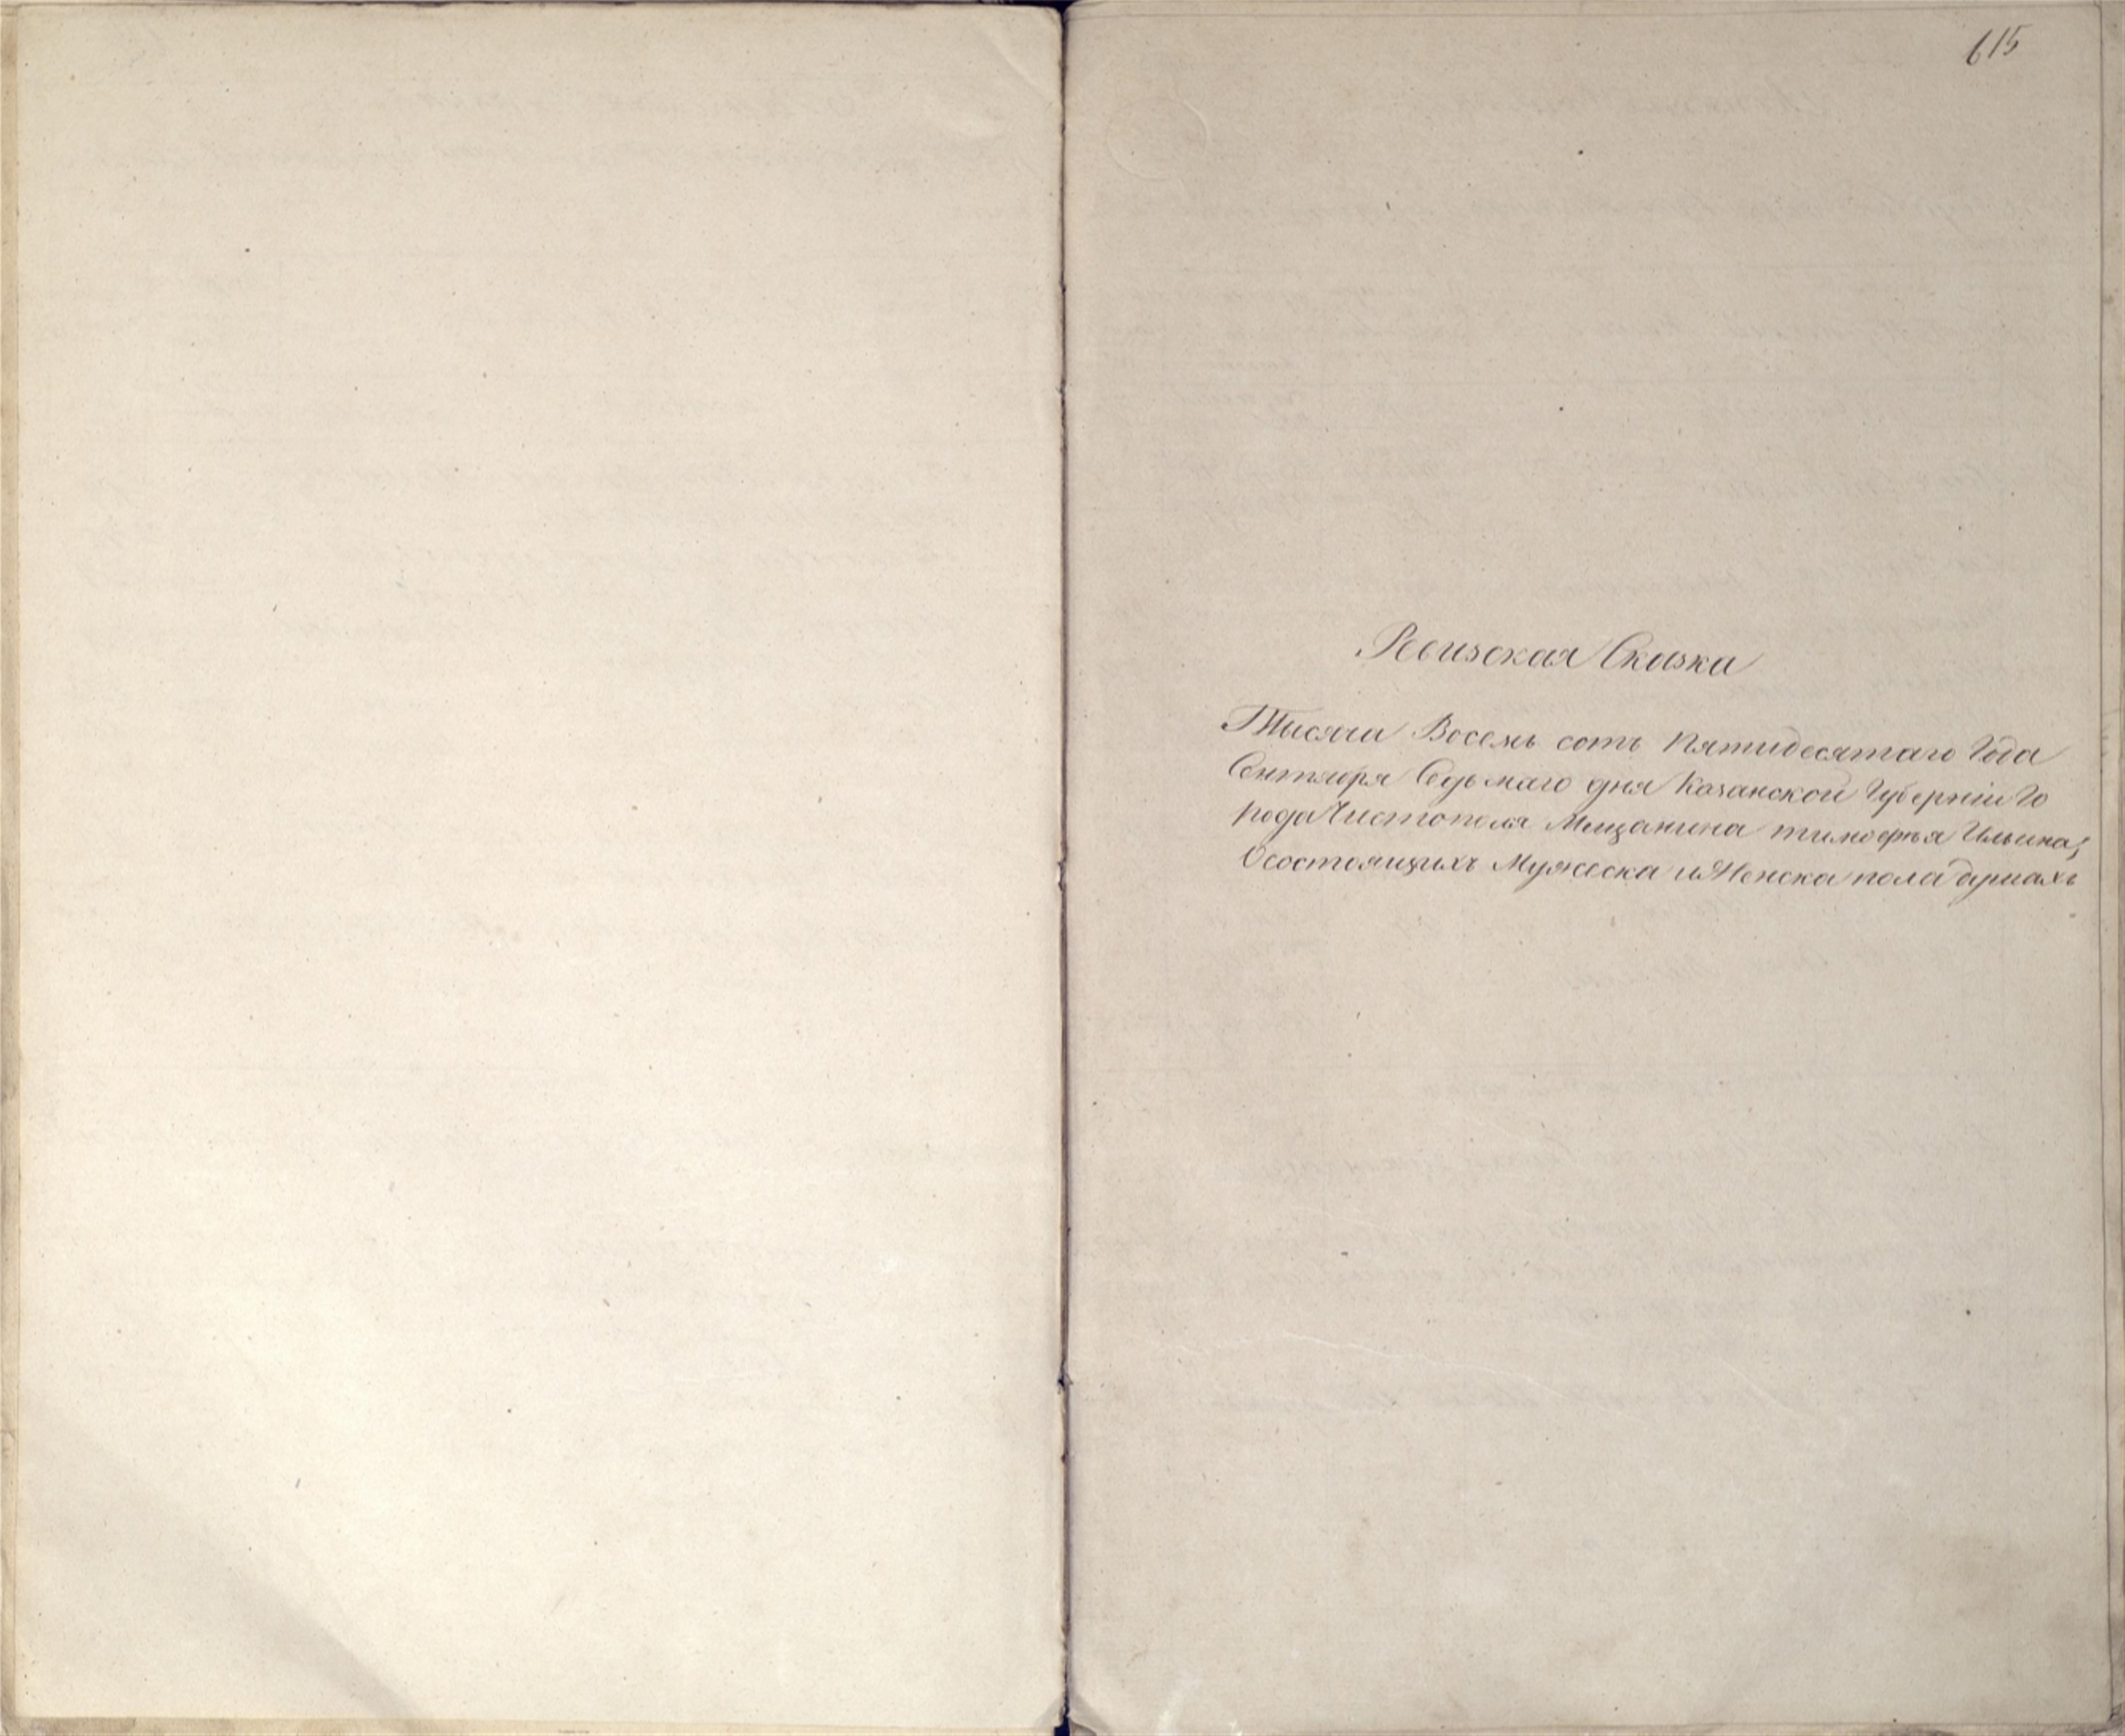 615
Ревизская Сказка
Тысяча Восемь сотъ Пятидесятаго Года
Сентября Седьмаго дня Казанской Губерніи Го
рода Чистополя Мещанина тимофья Ильина,
О состоящихъ Мужеска и Женска пола душахъ